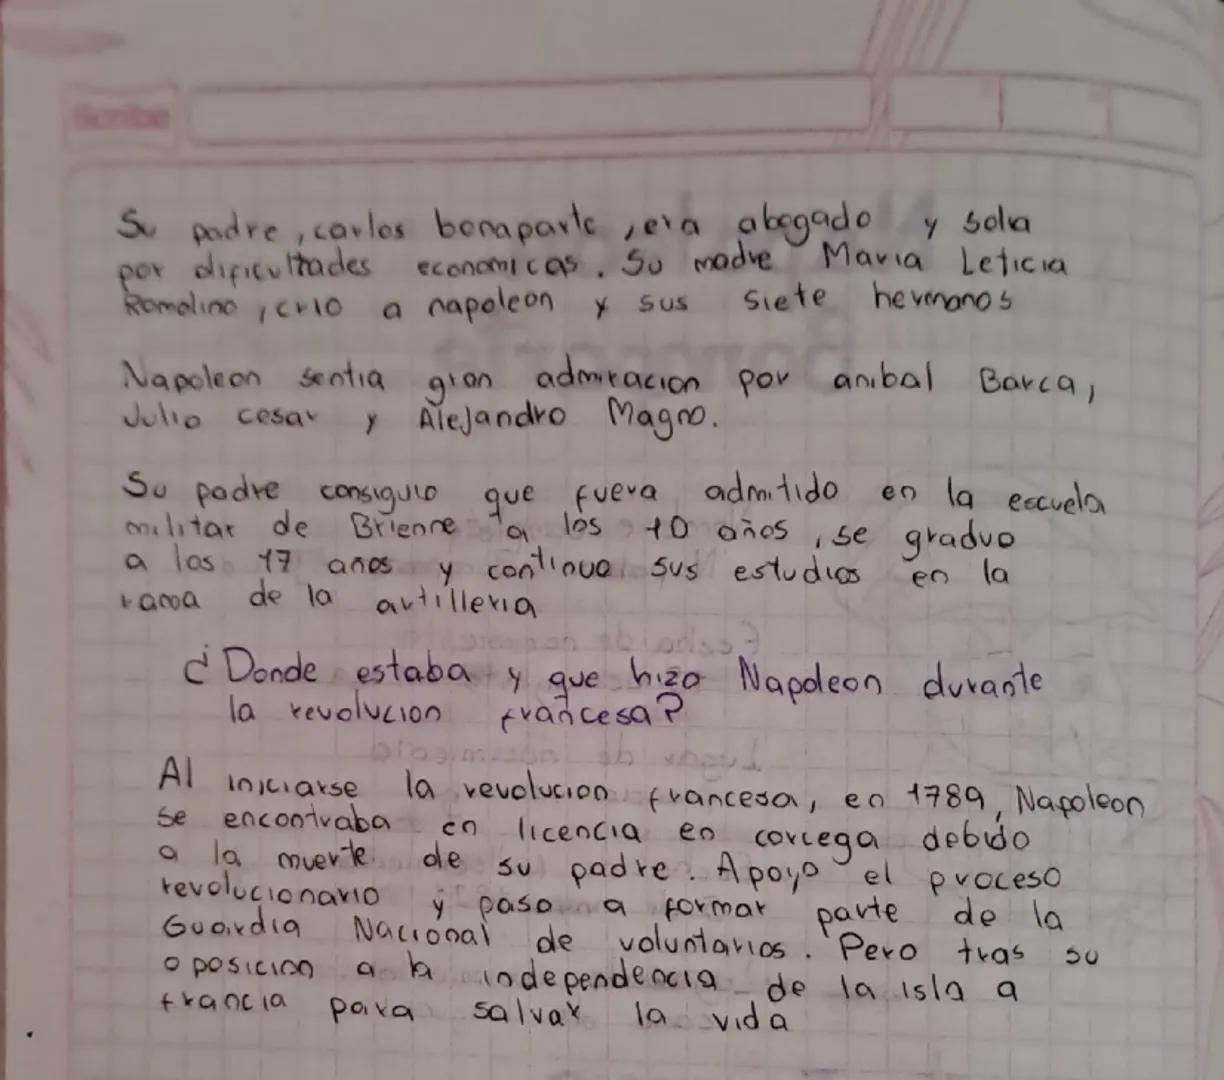 Scribe
Su padre, carlos bonaparte, era abogado y solia
por dificultades economicas. Su madre Maria Leticia
Romolino, crio a napoleon y sus siete hermanos
Napoleon sentia gran admiracion por anibal Barca,
Julio cesar y Alejandro Magno.
Su padre consiguio que fuera admitido en la escuela
militar de Brienne a los 10 años, se graduo
a los 17 años y continuo sus estudios en la
rama de la artilleria
¿Donde estaba y que hizo Napoleon durante
la revolucion francesa?
Al iniciarse la revolucion francesa, en 1789, Napoleon
se encontraba en licencia en corcega debido
a la muerte de su padre. Apoyo el proceso
revolucionario y paso a formar parte de la
Guardia Nacional de voluntarios. Pero tras su
oposicion a la independencia de la isla a
francia para salvar la vida